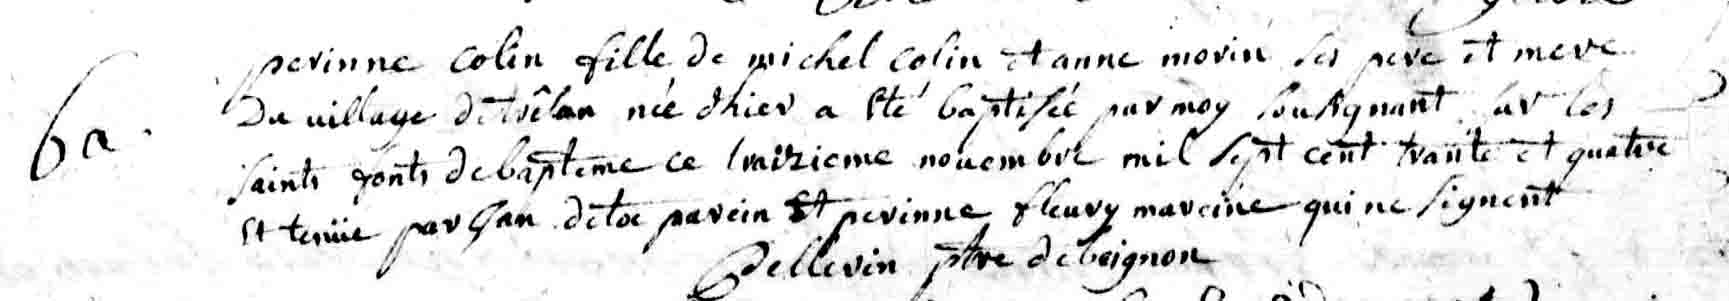 perinne colin fille de michel colin et anne morin ses pere et mere
Du village de trêlan née d'hier a été baptisée par moy sousignant sur les
ba.
saints fonts de bapteme ce traizieme nouembre mil sept cent trante et quatre
et tenüe par Jan detoc parein et perinne fleury mareine qui ne signent
Pellerin ptre de beignon